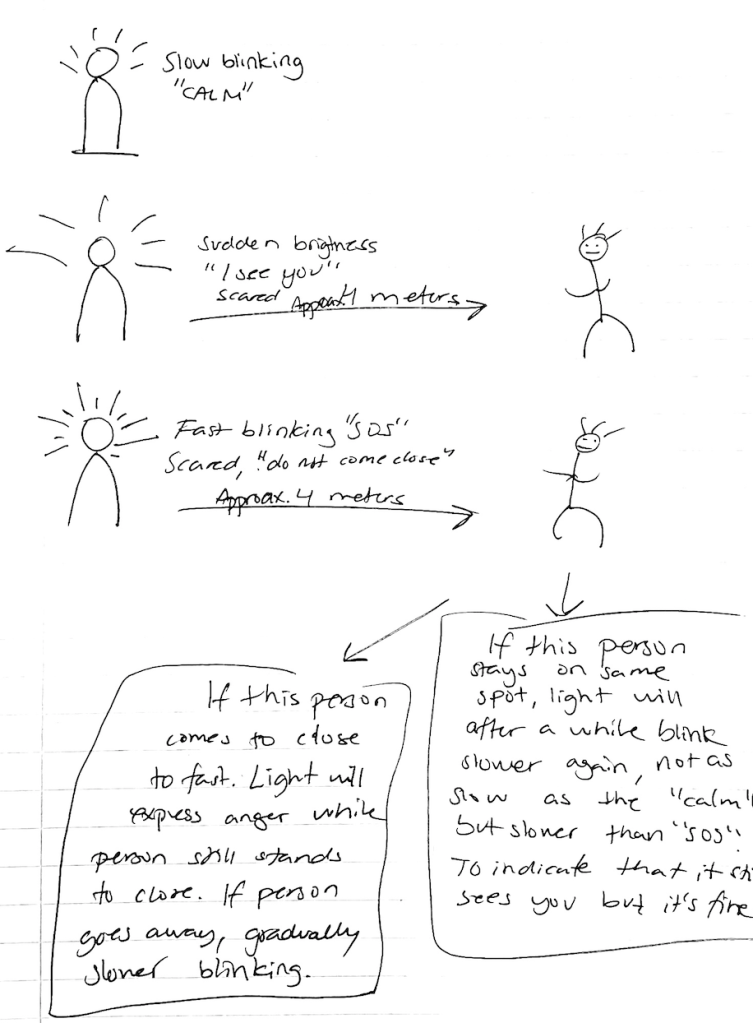 Slow blinking
"CALM"
Sudden brigness
"I see you"
scared Approax. 4 meters
Fast blinking "SOS"
Scared, "do not come close"
Approax. 4 meters
If this person
comes to close
to fast. Light will
express anger while
person still stands
to close. If person
goes away, gradually
slower blinking.
If this person
stays on same
spot, light will
after a while blink
slower again, not as
slow as the "calm"
but slower than "SOS".
To indicate that it sti
sees you but it's fine